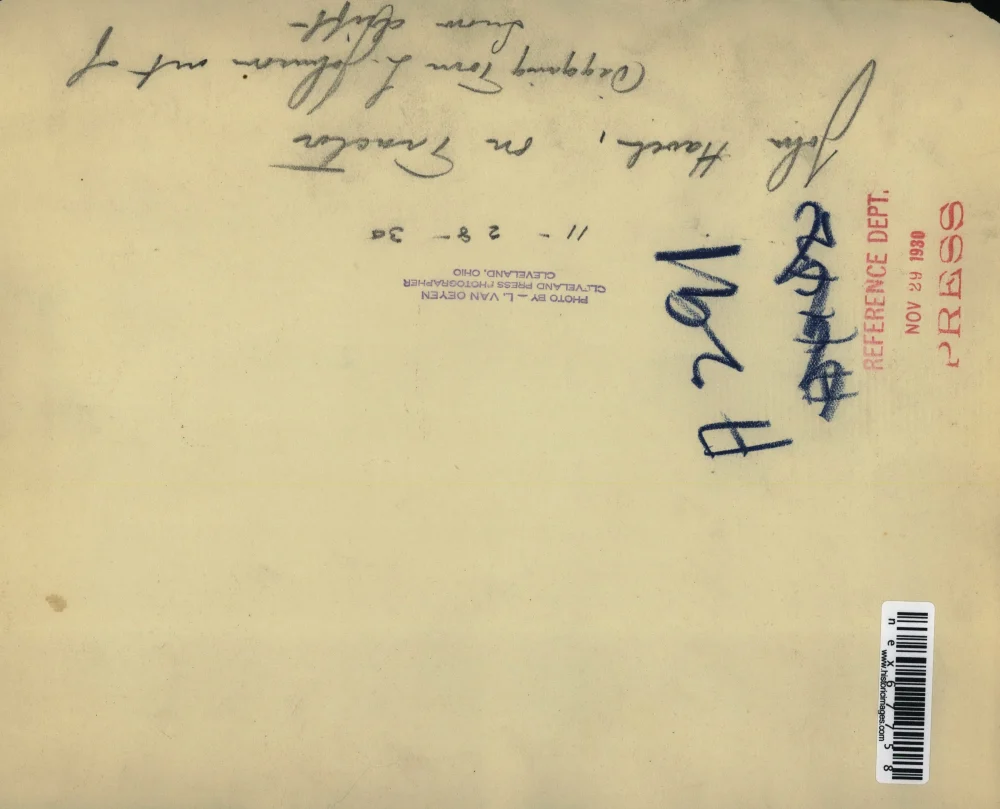 John Havel, on Tractor
Digging Tom L. Johnson out of
Snow drift
11 - 28 - 30
PHOTO BY — L. VAN OEYEN
CLEVELAND PRESS PHOTOGRAPHER
CLEVELAND, OHIO
REFERENCE DEPT.
NOV 29 1930
PRESS
nex67758
www.historicimages.com